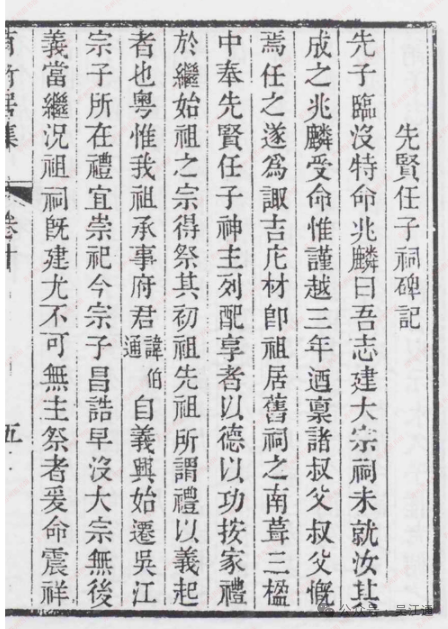 先賢任子祠碑記
先子臨沒特命兆麟曰吾志建大宗祠未就汝其
成之兆麟受命惟謹越三年迺稟諸叔父叔父慨
焉任之遂爲諏吉庀材卽祖居舊祠之南葺三楹
中奉先賢任子神主列配享者以德以功按家禮
於繼始祖之宗得祭其初祖先祖所謂禮以義起
者也粵惟我祖承事府君諱伯通自義興始遷吳江
宗子所在禮宜崇祀今宗子昌誥早沒大宗無後
義當繼況祖祠旣建尤不可無主祭者爰命震祥
有竹居集 卷十 五
公众号·吴江通